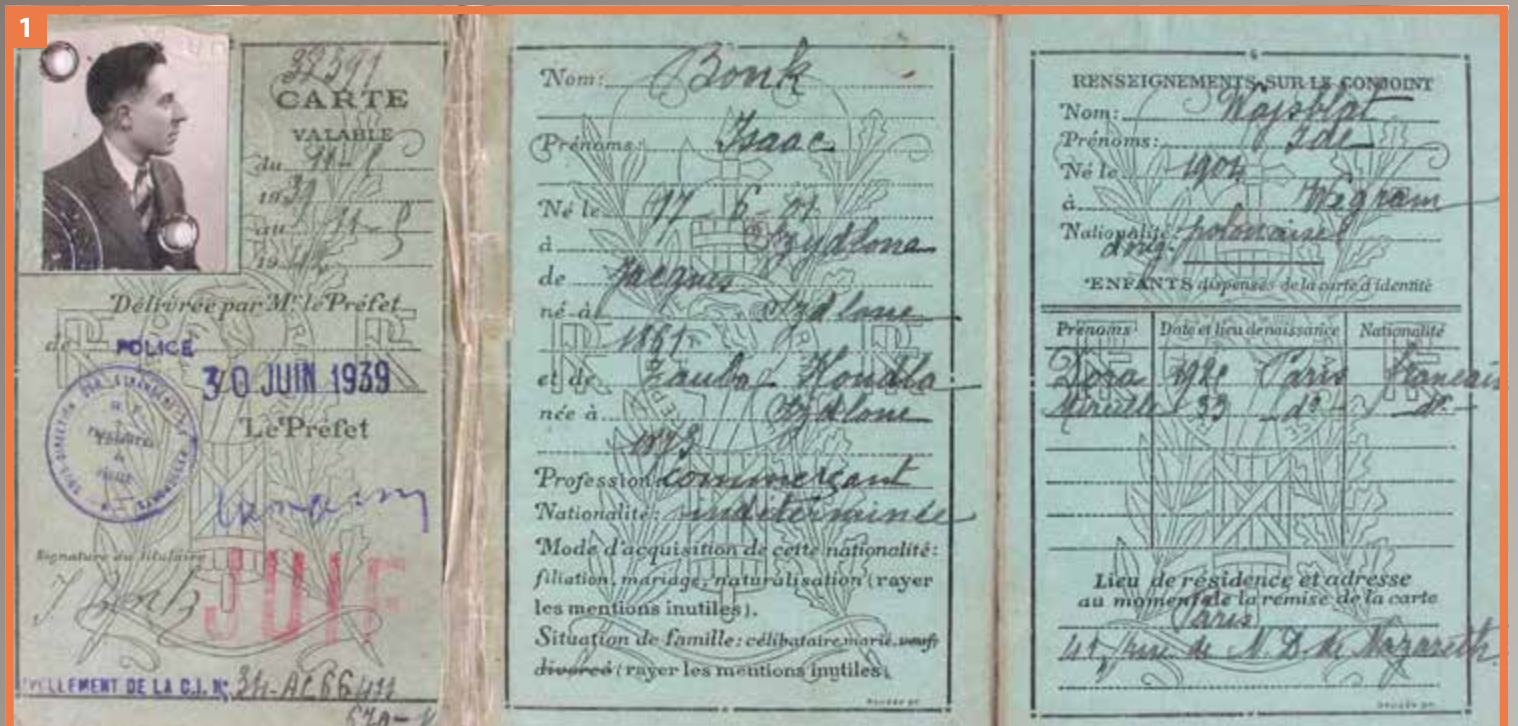 1
32591
CARTE
VALABLE
du 11-
1939
au 11-
19
Délivrée par Mr. le Préfet
de
POLICE
30 JUIN 1939
Le Préfet
Signature du titulaire
JUIF
VELLEMENT DE LA C.I. N° 34-AC66411
Nom: Bonk
Prénoms: Isaac
Né le 17-6-01
à Szydlona
de Jacques
né à Szydlone
1861
et de Zauba Hondla
née à Szydlone
1873
Profession: commerçant
Nationalité: indéterminée
Mode d'acquisition de cette nationalité:
filiation, mariage, naturalisation (rayer
les mentions inutiles).
Situation de famille: célibataire, marié, veuf,
divorcé (rayer les mentions inutiles)
RENSEIGNEMENTS SUR LE CONJOINT
Nom: Wajsblat
Prénoms: Ide
Né le 1904
à Wegram
Nationalité: polonaise
d'orig.
ENFANTS dispensés de la carte d'identité
Prénoms Date et lieu de naissance Nationalité
Dora Paris français
Mireille 33 -do- -do-
Lieu de résidence et adresse
au moment de la remise de la carte
Paris
41, rue de N.D. de Nazareth